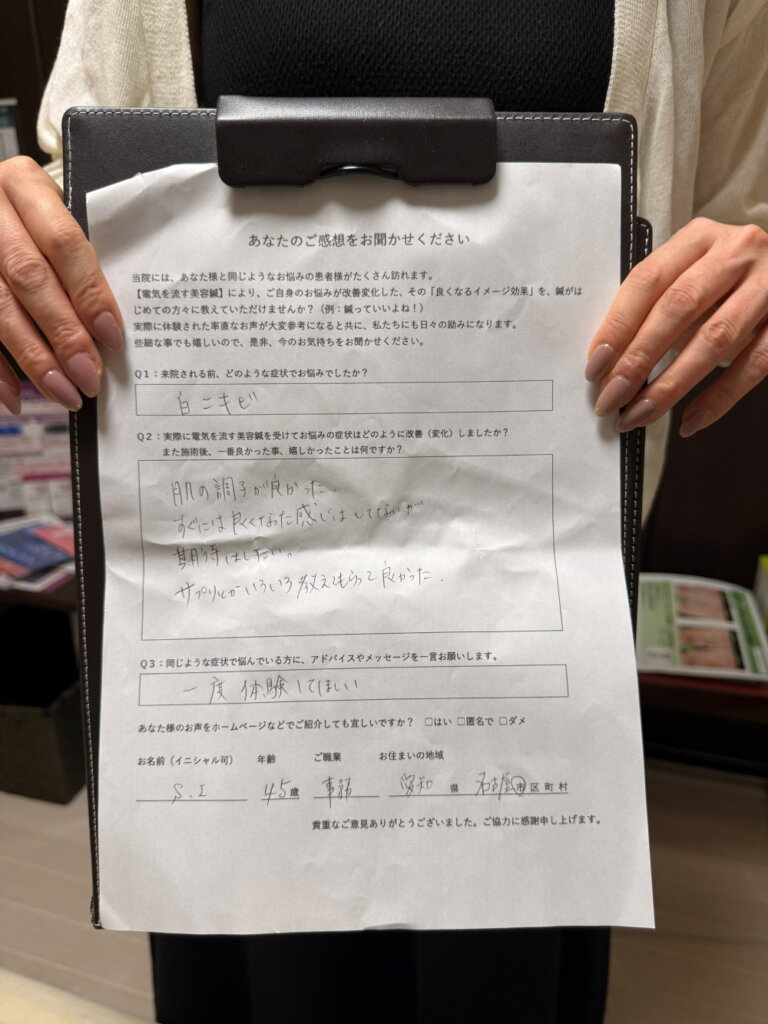 あなたのご感想をお聞かせください
当院には、あなた様と同じようなお悩みの患者様がたくさん訪れます。
【電気を流す美容鍼】により、ご自身のお悩みが改善変化した、その「良くなるイメージ効果」を、鍼がは
じめての方々に教えていただけませんか？（例：鍼っていいよね！）
実際に体験された率直なお声が大変参考になると共に、私たちにも日々の励みになります。
些細な事でも嬉しいので、是非、今のお気持ちをお聞かせください。
Q1：来院される前、どのような症状でお悩みでしたか？
白ニキビ
Q2：実際に電気を流す美容鍼を受けてお悩みの症状はどのように改善（変化）しましたか？
また施術後、一番良かった事、嬉しかったことは何ですか？
肌の調子が良かった。
すぐには良くなった感じはしてないが
期待はしたい。
サプリとかいろいろ教えてもらって良かった。
Q3：同じような症状で悩んでいる方に、アドバイスやメッセージを一言お願いします。
一度体験してほしい
あなた様のお声をホームページなどでご紹介しても宜しいですか？ □はい □匿名で □ダメ
お名前（イニシャル可） 年齢 ご職業 お住まいの地域
S.I 45歳 事務 愛知県 名古屋市区町村
貴重なご意見ありがとうございました。ご協力に感謝申し上げます。